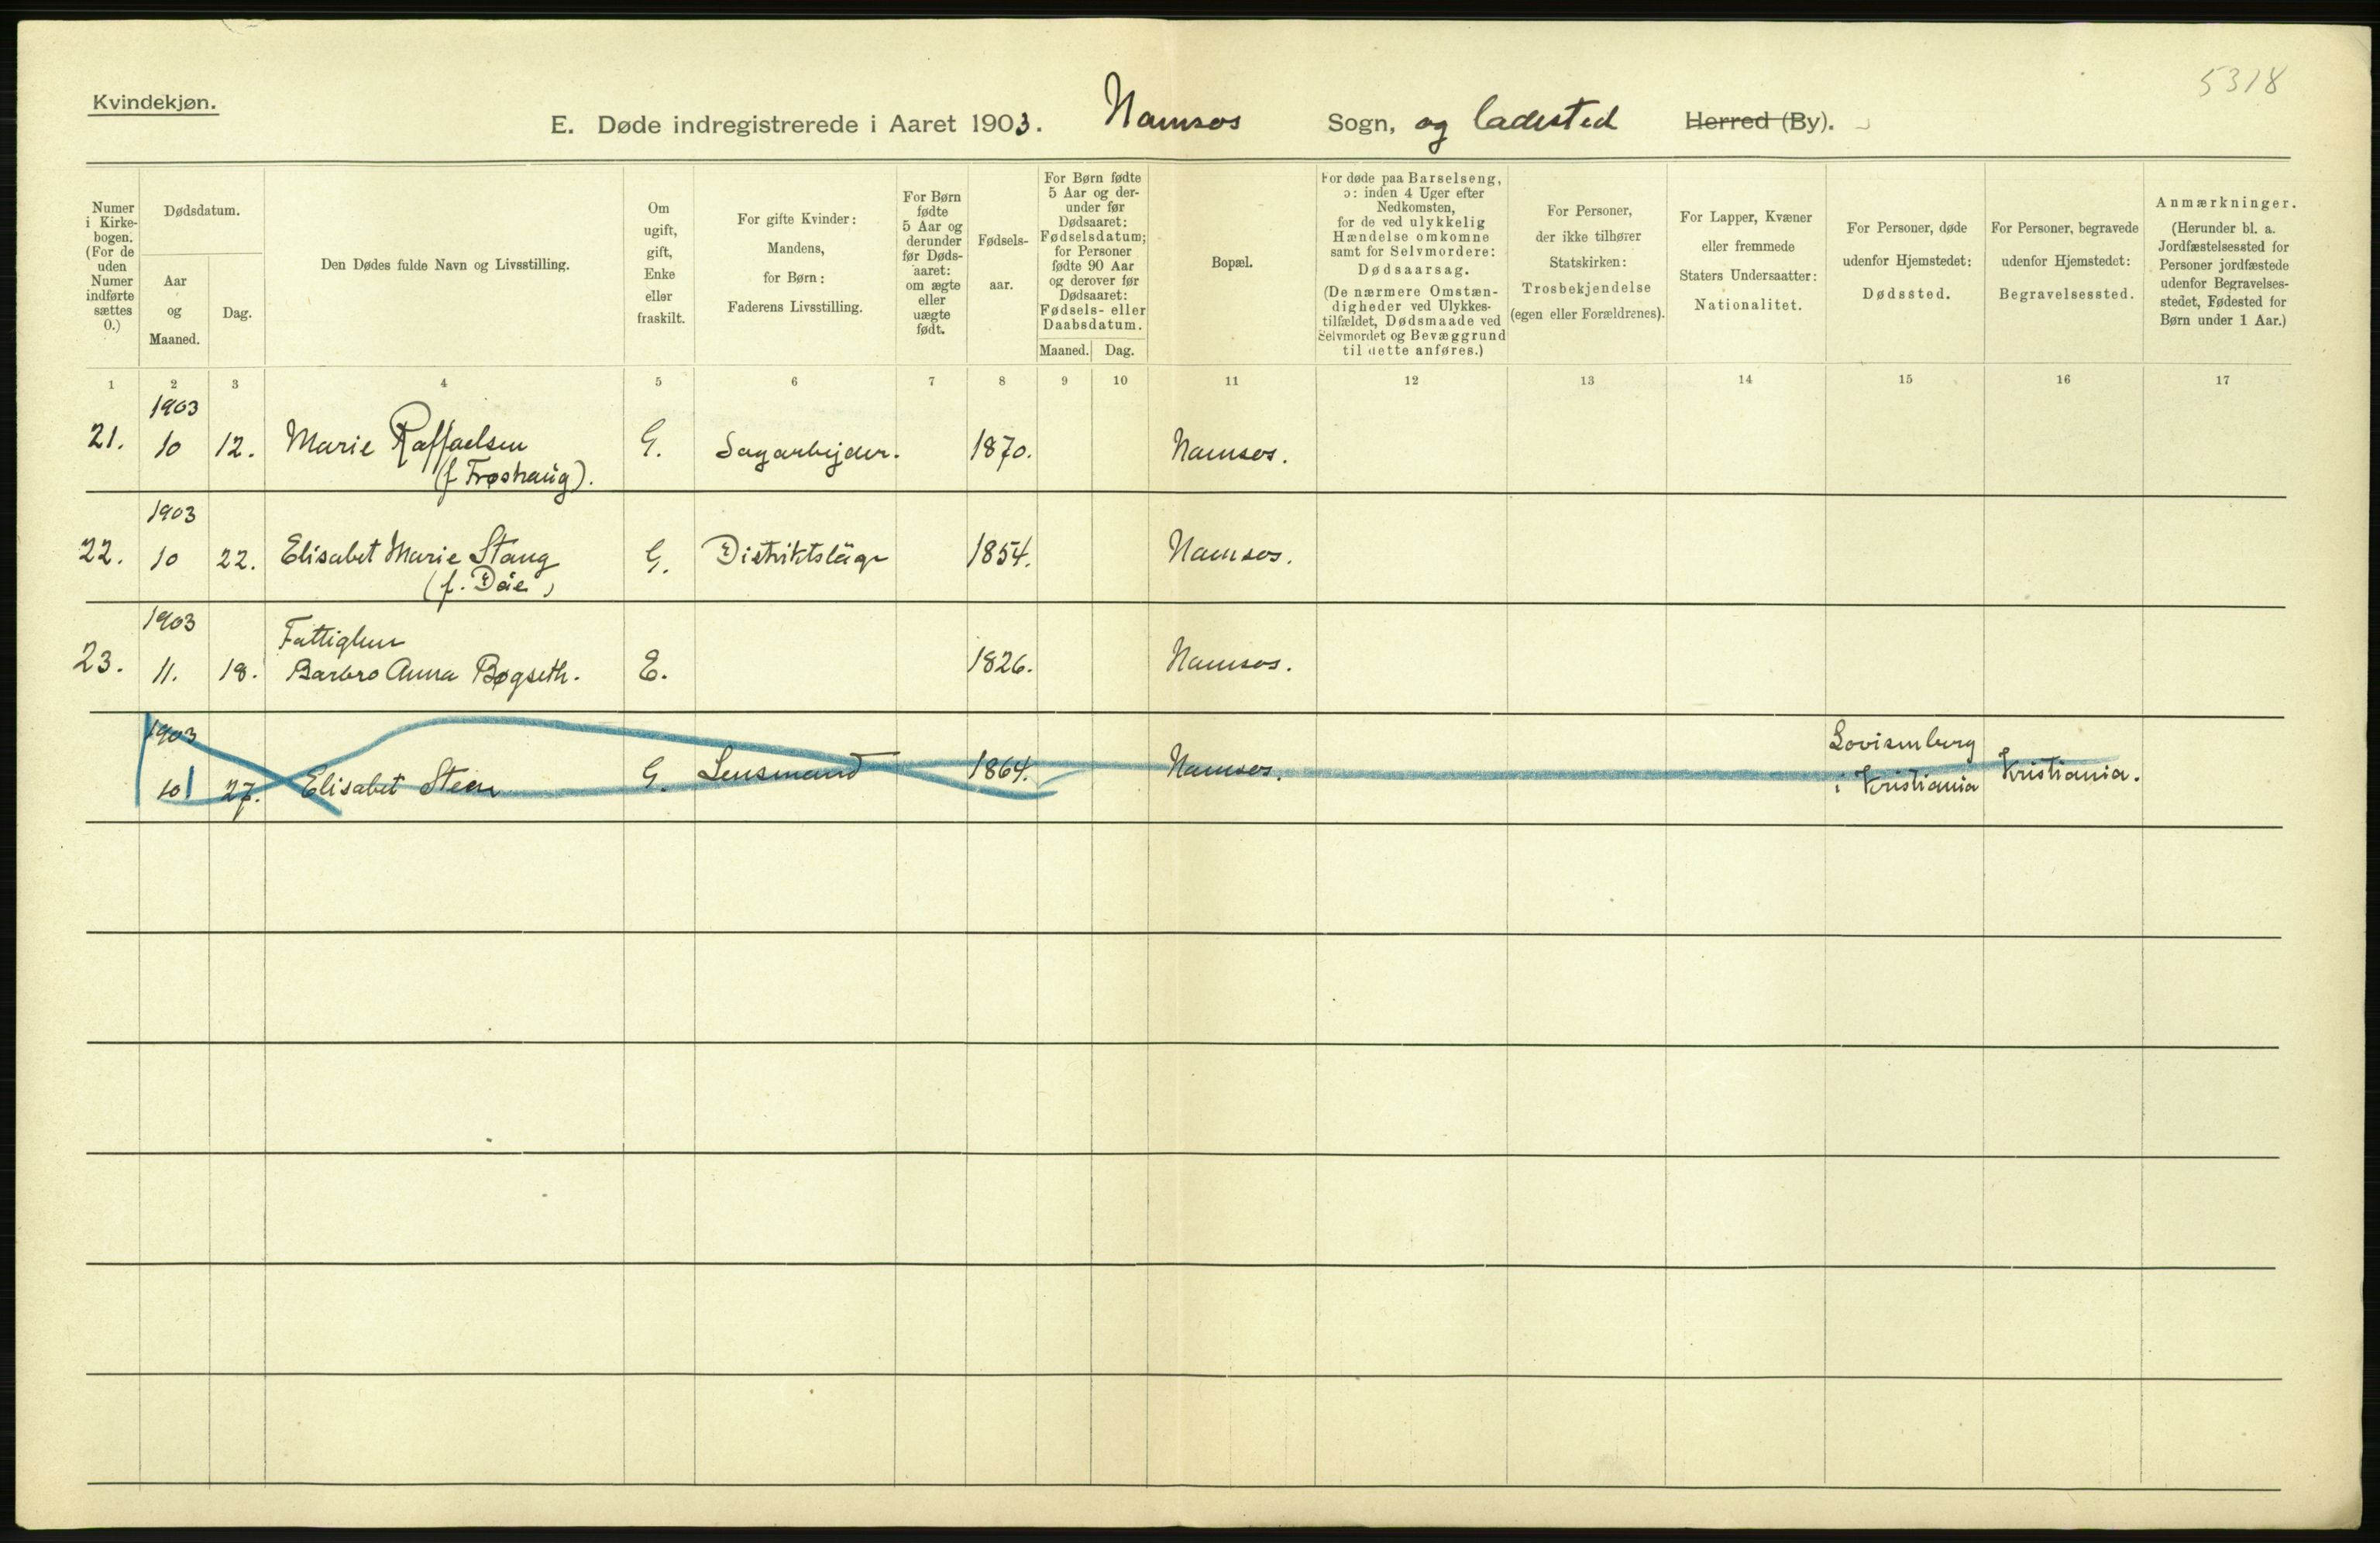 5318
Kvindekjøn.
E. Døde indregistrerede i Aaret 1903. Namsos Sogn, og ladested Herred (By).
Numer
i Kirke-
bogen.
(For de
uden
Numer
indførte
sættes
0.)
Dødsdatum.
Aar
og
Maaned.
Dag.
Den Dødes fulde Navn og Livsstilling.
Om
ugift,
gift,
Enke
eller
fraskilt.
For gifte Kvinder:
Mandens,
for Børn:
Faderens Livsstilling.
For Børn
fødte
5 Aar og
derunder
før Døds-
aaret:
om ægte
eller
uægte
født.
Fødsels-
aar.
For Børn fødte
5 Aar og der-
under før
Dødsaaret:
Fødselsdatum;
for Personer
fødte 90 Aar
og derover før
Dødsaaret:
Fødsels- eller
Daabsdatum.
Maaned. Dag.
Bopæl.
For døde paa Barselseng,
ɔ: inden 4 Uger efter
Nedkomsten,
for de ved ulykkelig
Hændelse omkomne
samt for Selvmordere:
Dødsaarsag.
(De nærmere Omstæn-
digheder ved Ulykkes-
tilfældet, Dødsmaade ved
Selvmordet og Bevæggrund
til dette anføres.)
For Personer,
der ikke tilhører
Statskirken:
Trosbekjendelse
(egen eller Forældrenes).
For Lapper, Kvæner
eller fremmede
Staters Undersaatter:
Nationalitet.
For Personer, døde
udenfor Hjemstedet:
Dødssted.
For Personer, begravede
udenfor Hjemstedet:
Begravelsessted.
Anmærkninger.
(Herunder bl. a.
Jordfæstelsessted for
Personer jordfæstede
udenfor Begravelses-
stedet, Fødested for
Børn under 1 Aar.)
1 2 3 4 5 6 7 8 9 10 11 12 13 14 15 16 17
1903
21. 10 12. Marie Raffaelsen G. Sagarbejder. 1870. Namsos.
(f Frøshaug).
1903
22. 10 22. Elisabet Marie Stang G. Distriktsläge 1854. Namsos.
(f. Döe)
1903
Fattiglem
23. 11. 18. Barbro Anna Bøgseth. E. 1826. Namsos.
1903 Lovisenberg
10 27. Elisabet Steen G. Lensmand 1864. Namsos. i Kristiania Kristiania.